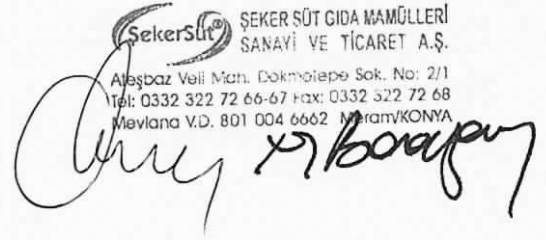 ŞekerSüt®
ŞEKER SÜT GIDA MAMÜLLERİ
SANAYİ VE TİCARET A.Ş.
Ateşbaz Veli Mah. Dokmotepe Sok. No: 2/1
Tel: 0332 322 72 66-67 Fax: 0332 322 72 68
Mevlana V.D. 801 004 6662 Meram/KONYA